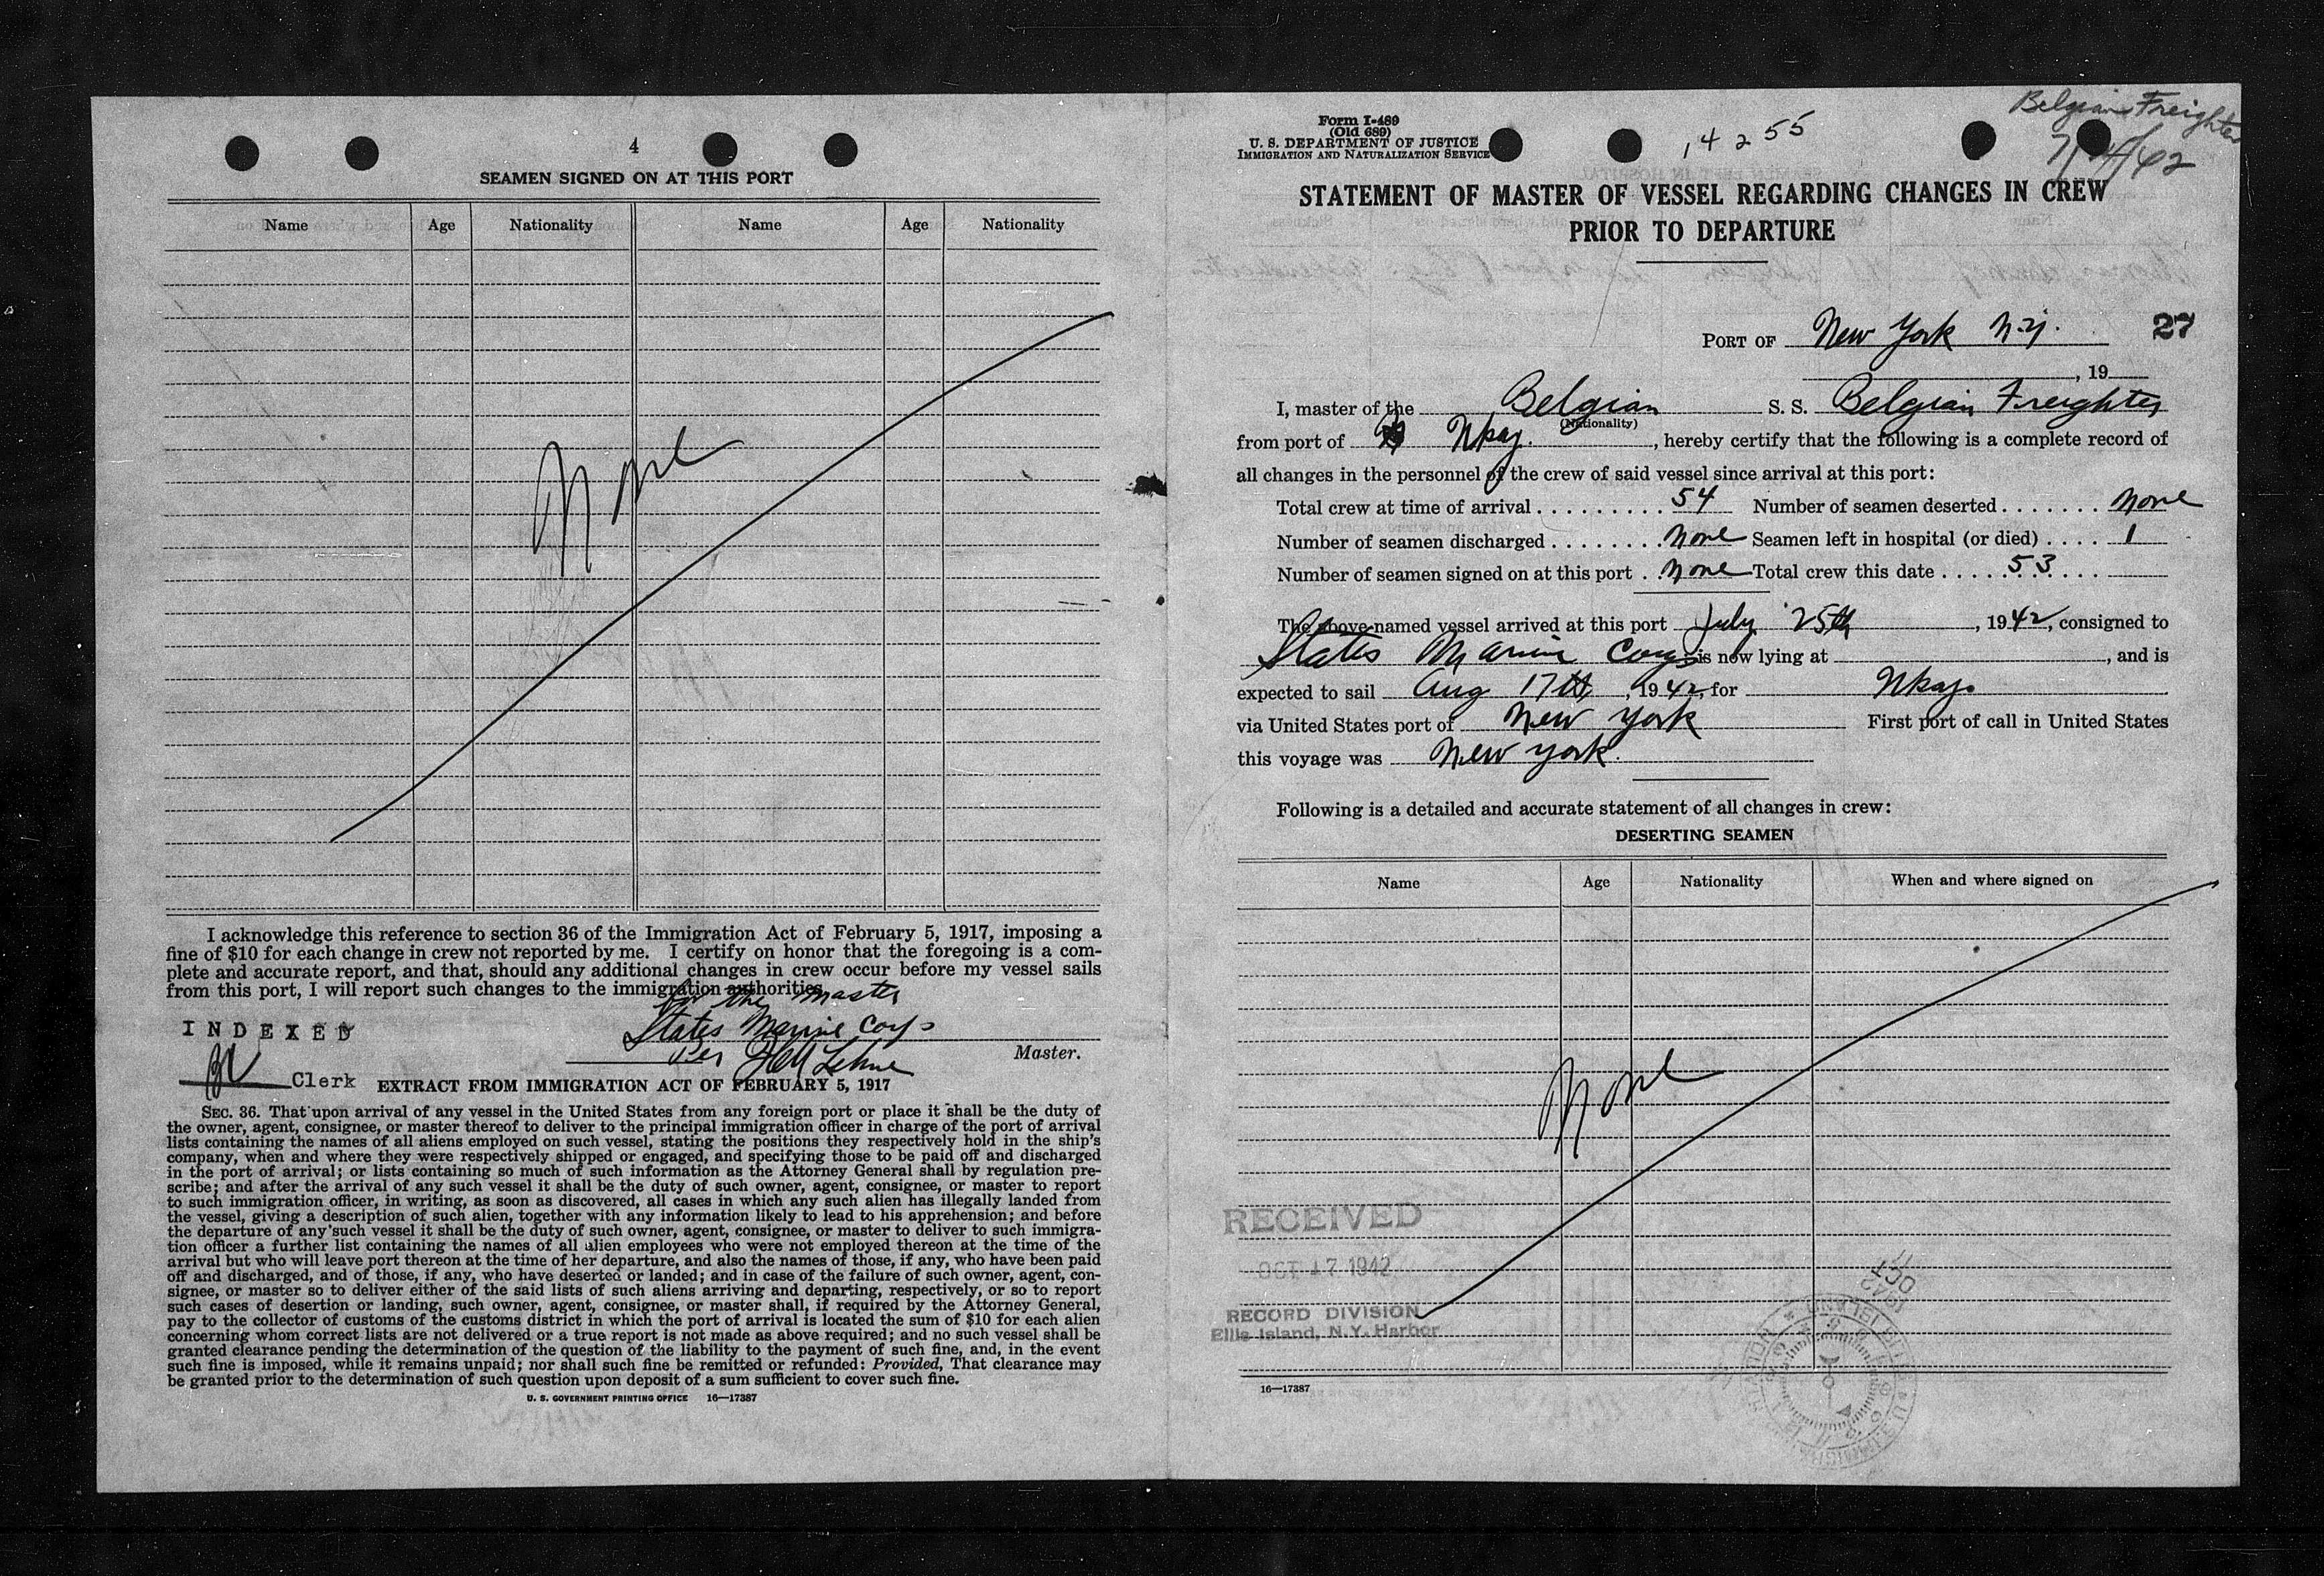 4
SEAMEN SIGNED ON AT THIS PORT
Name Age Nationality Name Age Nationality
None
I acknowledge this reference to section 36 of the Immigration Act of February 5, 1917, imposing a
fine of $10 for each change in crew not reported by me. I certify on honor that the foregoing is a com-
plete and accurate report, and that, should any additional changes in crew occur before my vessel sails
from this port, I will report such changes to the immigration authorities
for the master
INDEXED
States Marine Corp
per
Master.
Clerk
EXTRACT FROM IMMIGRATION ACT OF FEBRUARY 5, 1917
SEC. 36. That upon arrival of any vessel in the United States from any foreign port or place it shall be the duty of
the owner, agent, consignee, or master thereof to deliver to the principal immigration officer in charge of the port of arrival
lists containing the names of all aliens employed on such vessel, stating the positions they respectively hold in the ship's
company, when and where they were respectively shipped or engaged, and specifying those to be paid off and discharged
in the port of arrival; or lists containing so much of such information as the Attorney General shall by regulation pre-
scribe; and after the arrival of any such vessel it shall be the duty of such owner, agent, consignee, or master to report
to such immigration officer, in writing, as soon as discovered, all cases in which any such alien has illegally landed from
the vessel, giving a description of such alien, together with any information likely to lead to his apprehension; and before
the departure of any such vessel it shall be the duty of such owner, agent, consignee, or master to deliver to such immigra-
tion officer a further list containing the names of all alien employees who were not employed thereon at the time of the
arrival but who will leave port thereon at the time of her departure, and also the names of those, if any, who have been paid
off and discharged, and of those, if any, who have deserted or landed; and in case of the failure of such owner, agent, con-
signee, or master so to deliver either of the said lists of such aliens arriving and departing, respectively, or so to report
such cases of desertion or landing, such owner, agent, consignee, or master shall, if required by the Attorney General,
pay to the collector of customs of the customs district in which the port of arrival is located the sum of $10 for each alien
concerning whom correct lists are not delivered or a true report is not made as above required; and no such vessel shall be
granted clearance pending the determination of the question of the liability to the payment of such fine, and, in the event
such fine is imposed, while it remains unpaid; nor shall such fine be remitted or refunded: Provided, That clearance may
be granted prior to the determination of such question upon deposit of a sum sufficient to cover such fine.
U. S. GOVERNMENT PRINTING OFFICE 16—17387
Belgian Freighter
Form I-489
(Old 689)
U. S. DEPARTMENT OF JUSTICE
IMMIGRATION AND NATURALIZATION SERVICE
14255
STATEMENT OF MASTER OF VESSEL REGARDING CHANGES IN CREW
PRIOR TO DEPARTURE
PORT OF New York N.Y. 27
, 19
I, master of the Belgian S. S. Belgian Freighter
(Nationality)
from port of , hereby certify that the following is a complete record of
all changes in the personnel of the crew of said vessel since arrival at this port:
Total crew at time of arrival . . . . . . . . . 54 Number of seamen deserted . . . . . . . None
Number of seamen discharged . . . . . . . . None Seamen left in hospital (or died) . . . . 1
Number of seamen signed on at this port . . None Total crew this date . . . . . . . . . . 53
The above-named vessel arrived at this port July 25th, 1942, consigned to
States Marine Corp is now lying at , and is
expected to sail Aug 17th, 1942 for
via United States port of New York First port of call in United States
this voyage was New York.
Following is a detailed and accurate statement of all changes in crew:
DESERTING SEAMEN
Name Age Nationality When and where signed on
None
RECEIVED
OCT 17 1942
RECORD DIVISION
Ellis Island, N.Y. Harbor
16—17387